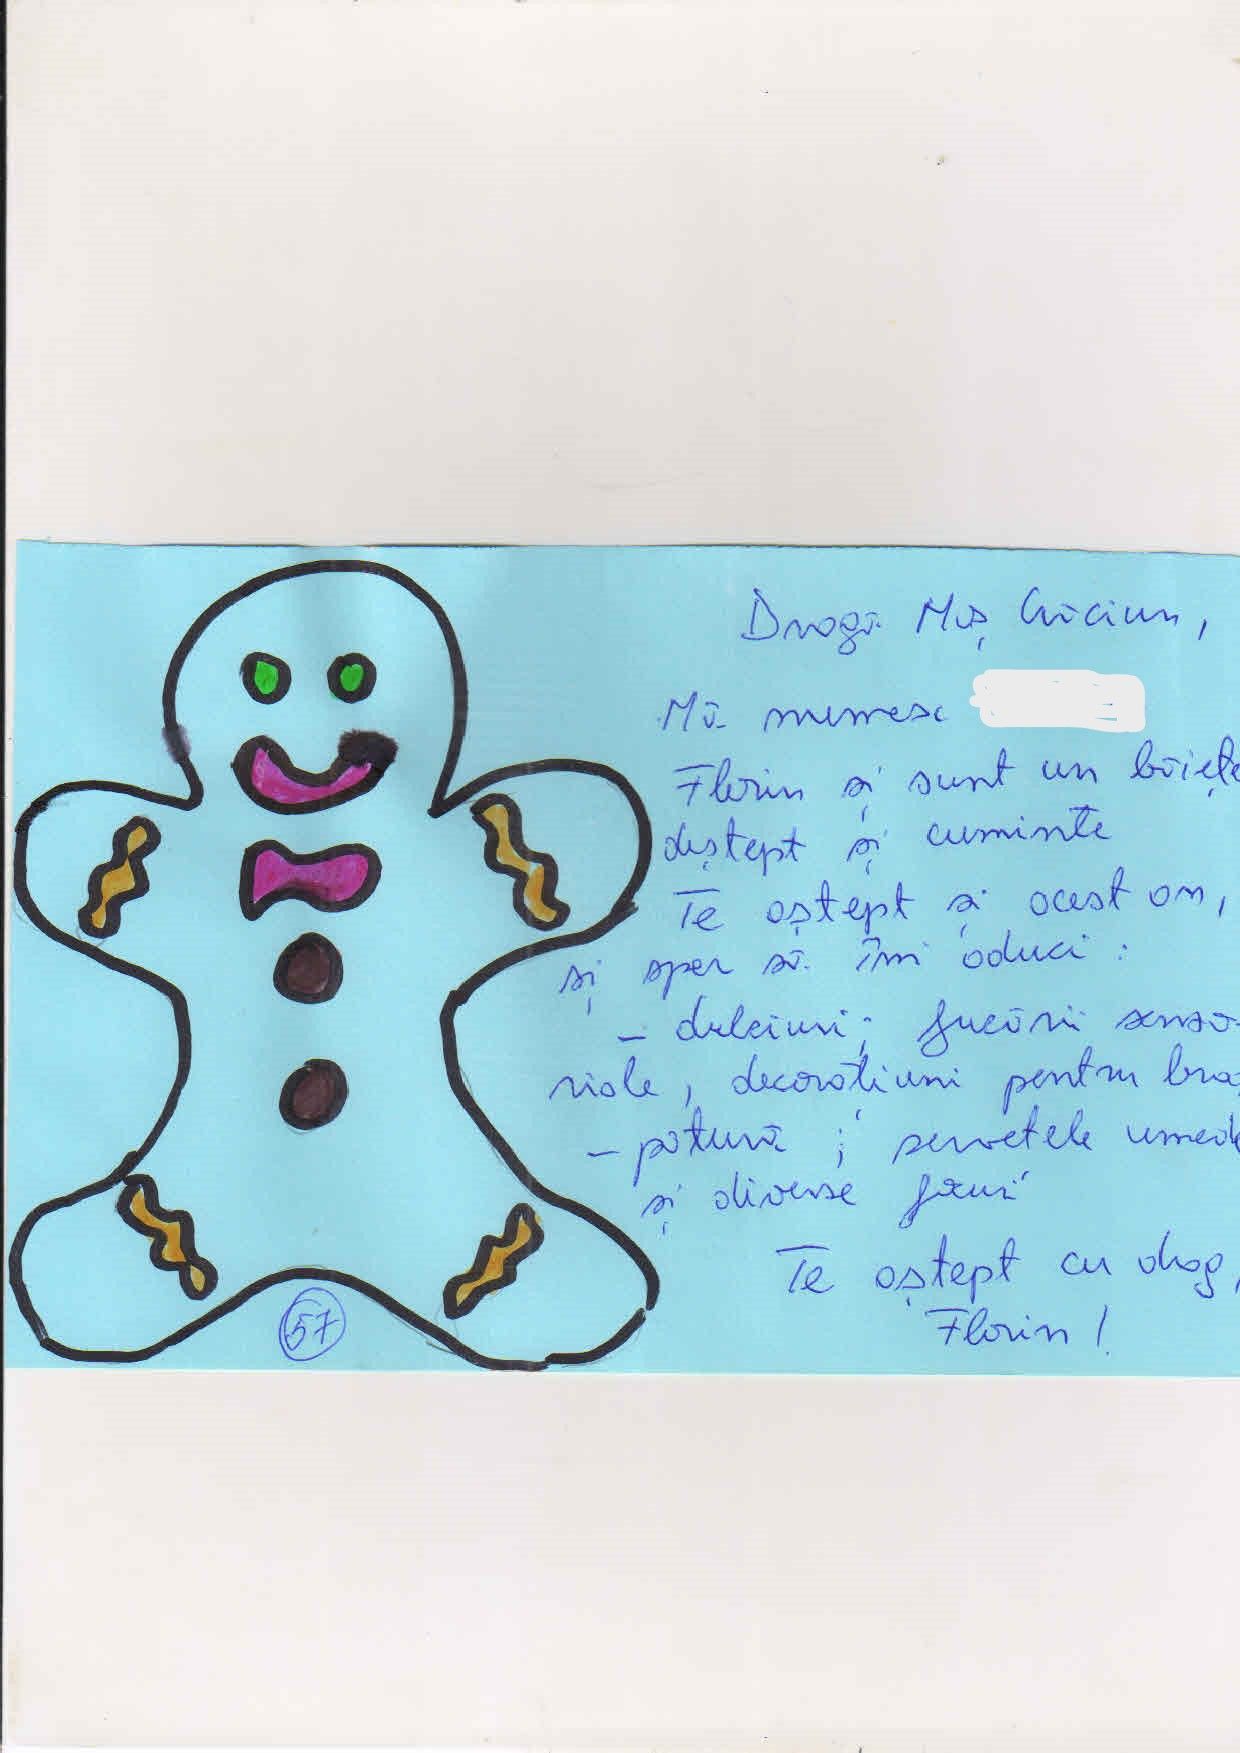 Dragă Moș Crăciun,
Mă numesc
Florin și sunt un băiețe
deștept și cuminte
Te aștept și acest an,
și sper să îmi aduci :
- dulciuri; jucării senzo-
riale, decorațiuni pentru bra
- pătură ; servetele umede
și diverse jocuri
Te aștept cu drag,
Florin !
57